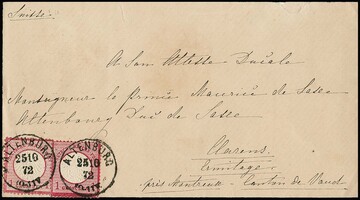 Suisse.
A Son Altesse Ducale
Monseigneur le Prince Maurice de Saxe
Altenbourg Duc de Saxe
Clarens.
Ermitage
près Montreux - Canton de Vaud.
ALTENBURG
2510
72
ALTENBURG
2510
72
1